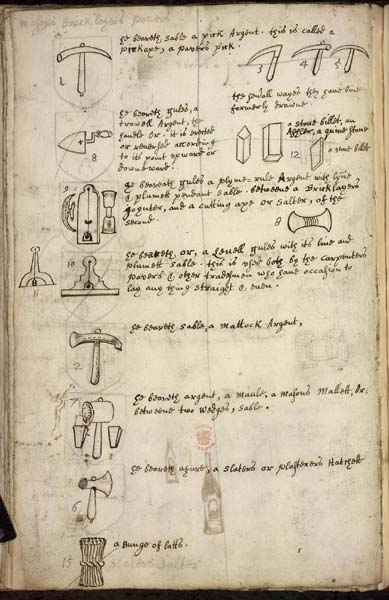 masons Bricklayers pavers
he beareth, sable a pick Argent. this is called a
pickaxe, a pavers pick.
1
3
4
5
the severall wayes they have bine
formerly drawne.
he beareth gules, a
trowell Argent, the
handle Or. it is erected
or reversed according
to its point upward or
downeward.
8
a stone billet, an
12
a stone billet
he beareth gules a plyme-rule Argent with lyne
& plumett pendant sable. betweene a Bricklayers
Joynter, and a cutting axe or salter, of the
second.
9
8
he beareth, or, a levell gules with its line and
plumett sable. this is used both by the carpenters
pavers & other tradesmen who have occasion to
lay any thing straight & even.
10
11
he beareth sable, a mattock Argent,
2
he beareth argent, a maule, a masons mallett, Or:
betweene two wedges, sable.
7
8
he beareth azure, a slaters or plasterers Hatchett
6
10
a Bunge of latts.
15
slaters